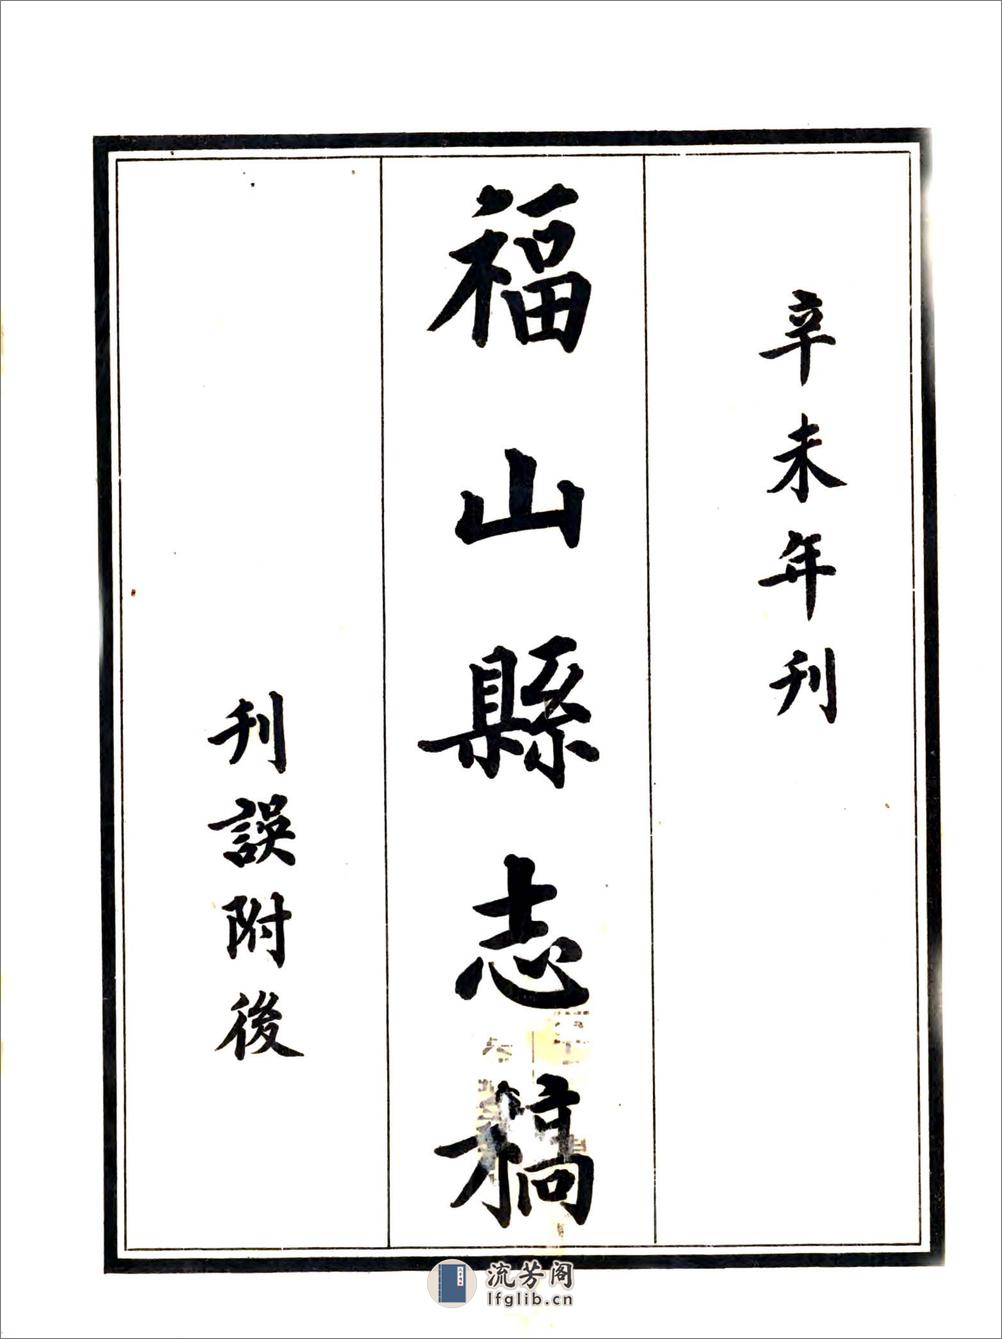 辛未年刊
福山縣志稿
刊誤附後
流芳阁
lfglib.cn